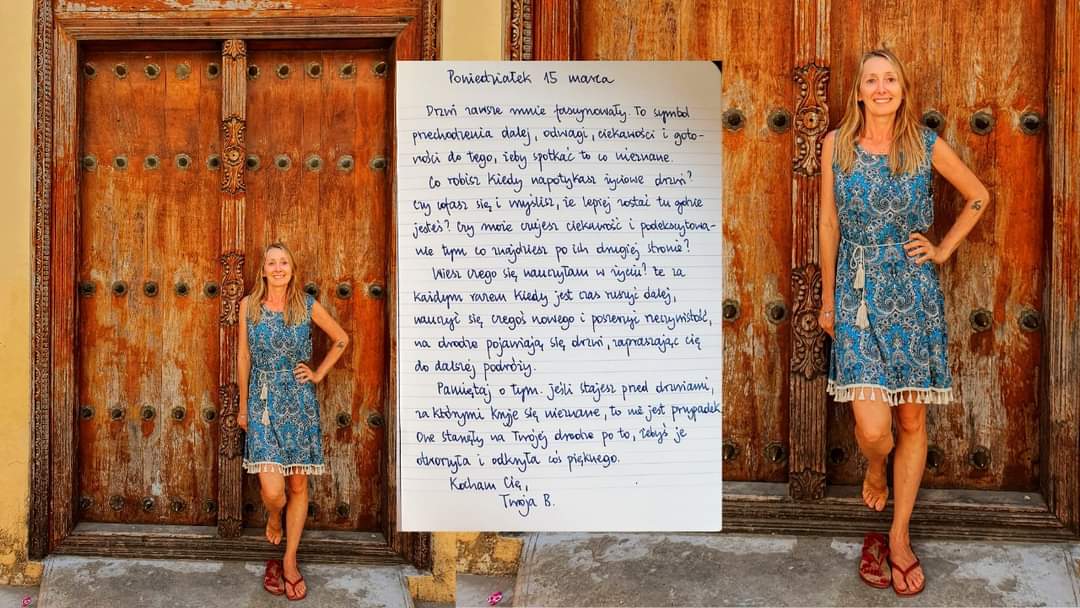 Poniedziałek 15 marca
Drzwi zawsze mnie fascynowały. To symbol
przechodzenia dalej, odwagi, ciekawości i goto-
wości do tego, żeby spotkać to co nieznane.
Co robisz kiedy napotykasz życiowe drzwi?
Czy cofasz się i myślisz, że lepiej zostać tu gdzie
jesteś? Czy może czujesz ciekawość i podekscytowa-
nie tym co znajdziesz po ich drugiej stronie?
Wiesz czego się nauczyłam w życiu? Że za
każdym razem kiedy jest czas ruszyć dalej,
nauczyć się czegoś nowego i poszerzyć rzeczywistość,
na drodze pojawiają się drzwi, zapraszając cię
do dalszej podróży.
Pamiętaj o tym. jeśli stajesz przed drzwiami,
za którymi kryje się nieznane, to nie jest przypadek
One stanęły na Twojej drodze po to, żebyś je
otworzyła i odkryła coś pięknego.
Kocham Cię,
Twoja B.